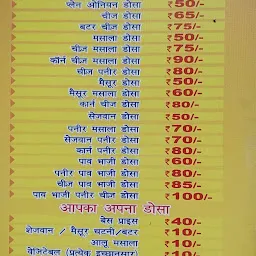 प्लेन ओनियन डोसा ₹50/-
चीज़ डोसा ₹65/-
बटर चीज़ डोसा ₹75/-
मसाला डोसा ₹50/-
चीज़ मसाला डोसा ₹75/-
कॉर्न चीज़ मसाला डोसा ₹90/-
चीज़ पनीर डोसा ₹80/-
मैसूर डोसा ₹50/-
मैसूर मसाला डोसा ₹60/-
कार्न चीज़ डोसा ₹80/-
सेजवान डोसा ₹50/-
पनीर मसाला डोसा ₹70/-
सेजवान पनीर डोसा ₹70/-
कार्न पनीर डोसा ₹80/-
पाव भाजी डोसा ₹60/-
पाव भाजी पनीर डोसा ₹80/-
चीज़ पाव भाजी डोसा ₹85/-
पाव भाजी पनीर चीज़ डोसा ₹100/-
आपका अपना डोसा
बेस प्राइस ₹40/-
शेजवान / मैसूर चटनी/बटर ₹10/-
आलू मसाला ₹10/-
वेजिटेबल (प्रत्येक इच्छानुसार) ₹10/-